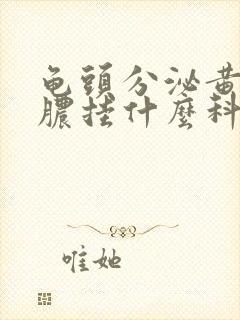 龟頭分泌黄
膿挂什麽科
唯她